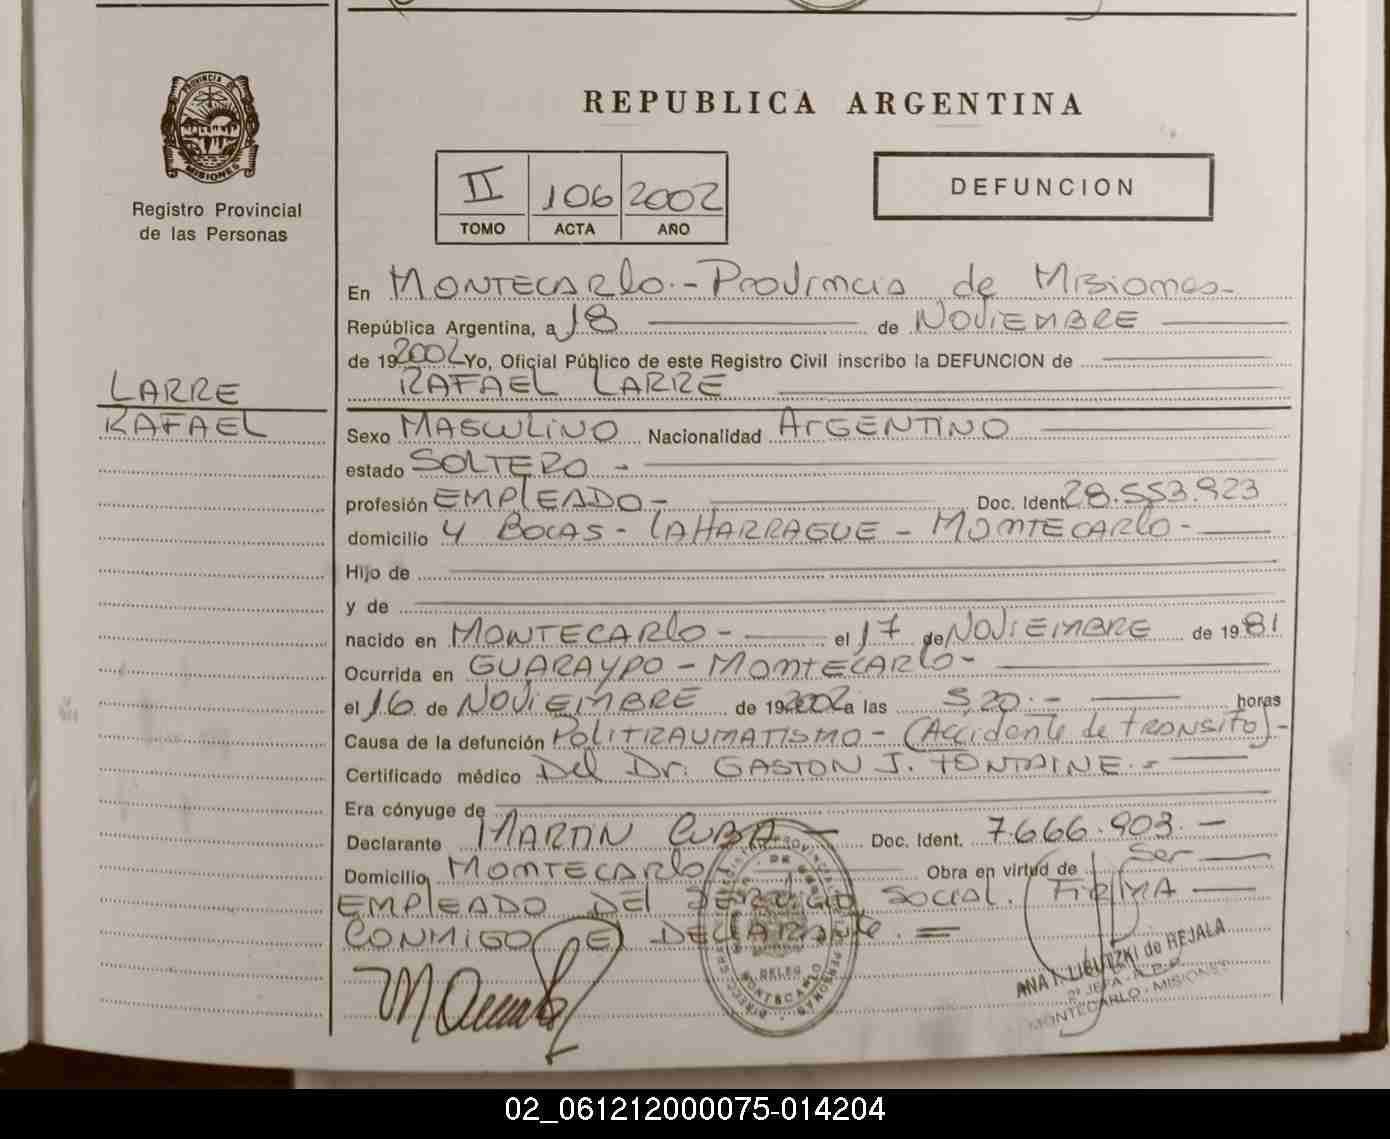 PROVINCIA DE
MISIONES
Registro Provincial
de las Personas
REPUBLICA ARGENTINA
II 106 2002
TOMO ACTA AÑO
DEFUNCION
En MONTECARLO.- Provincia de Misiones-
República Argentina, a 18 de NOVIEMBRE
de 192002 Yo, Oficial Público de este Registro Civil inscribo la DEFUNCION de
RAFAEL LARRE
LARRE
RAFAEL
Sexo MASCULINO Nacionalidad ARGENTINO
estado SOLTERO -
profesión EMPLEADO- Doc. Ident 28.553.923
domicilio 4 BOCAS - LAHARRAGUE - MONTECARLO -
Hijo de
y de
nacido en MONTECARLO - el 17 de NOVIEMBRE de 1981
Ocurrida en GUARAYPO - MONTECARLO -
el 16 de NOVIEMBRE de 192002 a las 5,20.- horas
Causa de la defunción POLITRAUMATISMO - (Accidente de transito)-
Certificado médico Del Dr. GASTON J. FONTAINE.-
Era cónyuge de
Declarante MARTIN CUBA - Doc. Ident. 7.666.903.-
Domicilio MONTECARLO Obra en virtud de Ser
EMPLEADO DEL SERVICIO SOCIAL. FIRMA
CONMIGO El DECLARANTE. =
MONTECARLO
ANA LIBUTZKI de REJALA
2º JEFA
MONTECARLO - MISIONES
02_061212000075-014204